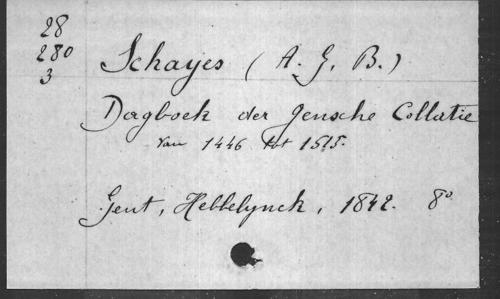 28
280
3
Schayes (A. G. B.)
Dagboek der Gensche Collatie
van 1446 tot 1515.
Gent, Hebbelynck, 1842. 8°